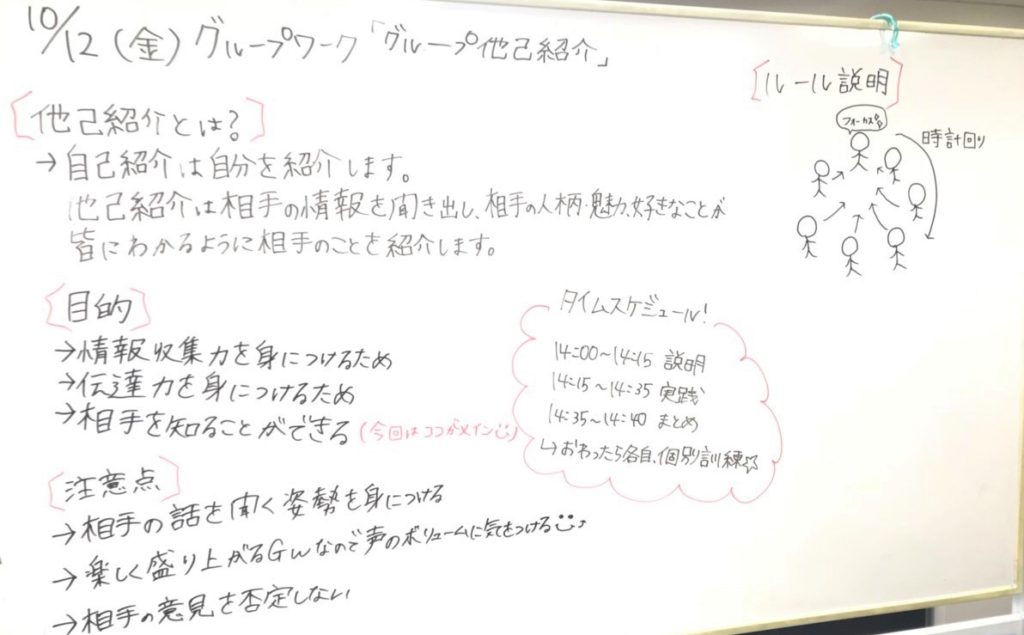 10/12(金)グループワーク「グループ他己紹介」
[他己紹介とは?]
→自己紹介は自分を紹介します。
他己紹介は相手の情報を聞き出し、相手の人柄・魅力、好きなことが
皆にわかるように相手のことを紹介します。
[目的]
→情報収集力を身につけるため
→伝達力を身につけるため
→相手を知ることができる(今回はココがメイン)
[注意点]
→相手の話を聞く姿勢を身につける
→楽しく盛り上がるGWなので声のボリュームに気をつける
→相手の意見を否定しない
タイムスケジュール!
14:00~14:15 説明
14:15~14:35 実践
14:35~14:40 まとめ
↳おわったら各自、個別訓練☆
[ルール説明]
フォーカス
時計回り